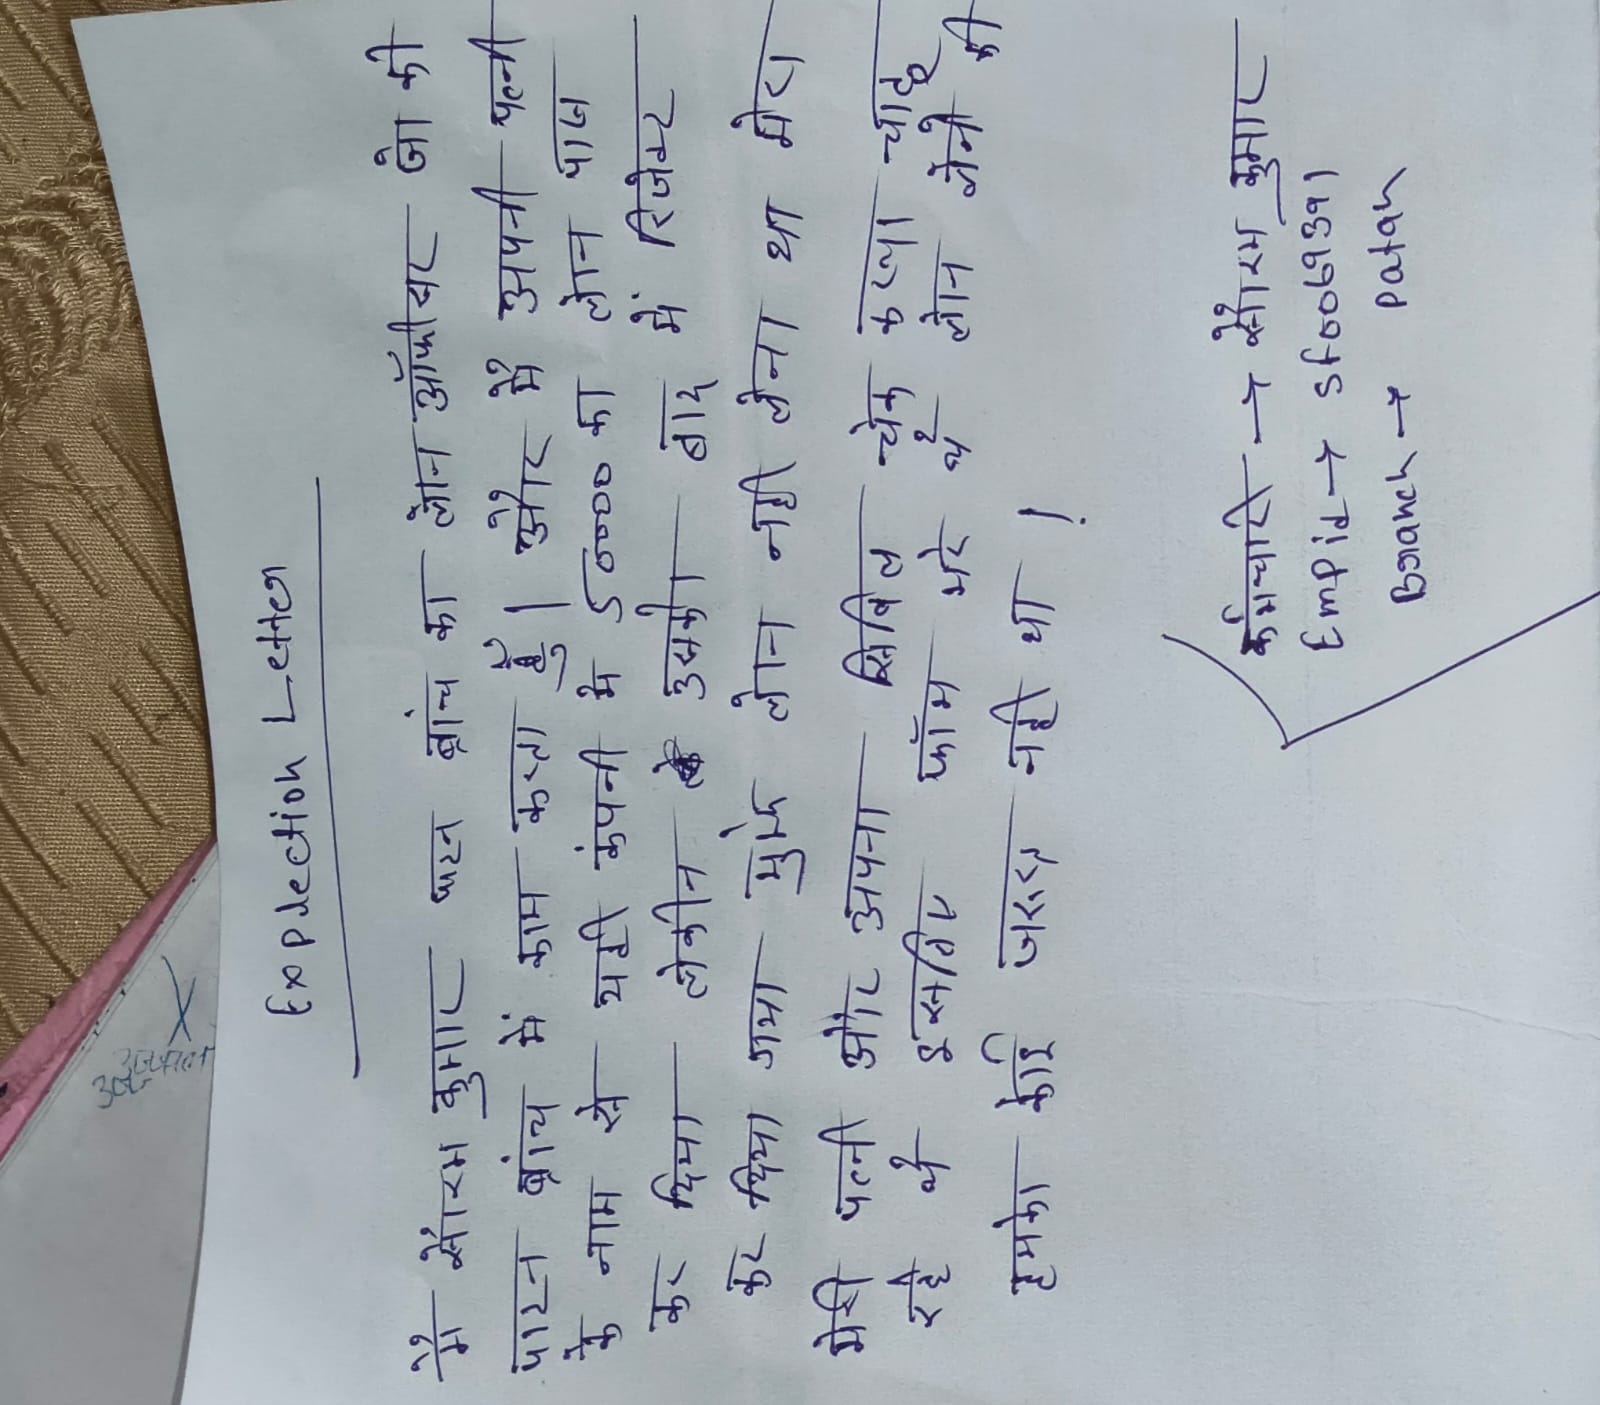 Explection Letter
मै सौरभ कुमार पाटन ब्रांच का लोन ऑफीसर जो की
पाटन ब्रांच में काम करता हुँ। और मैं अपनी पत्नी
के नाम से यही कंपनी मे 50000 का लोन पास
कर दिया लेकीन उसको बाद में रिजेक्ट
कर दिया गया मुझे लोन नही लेना था मेरा
मेरी पत्नी और अपना सिबिल चेक करना चाह
रहे थे इसलिए फॉम भरे थे लोन लेने की
हमको कोई जरूरत नही था !
कर्मचारी → सौरभ कुमार
Emp id → Sf0069391
Branch → Patan